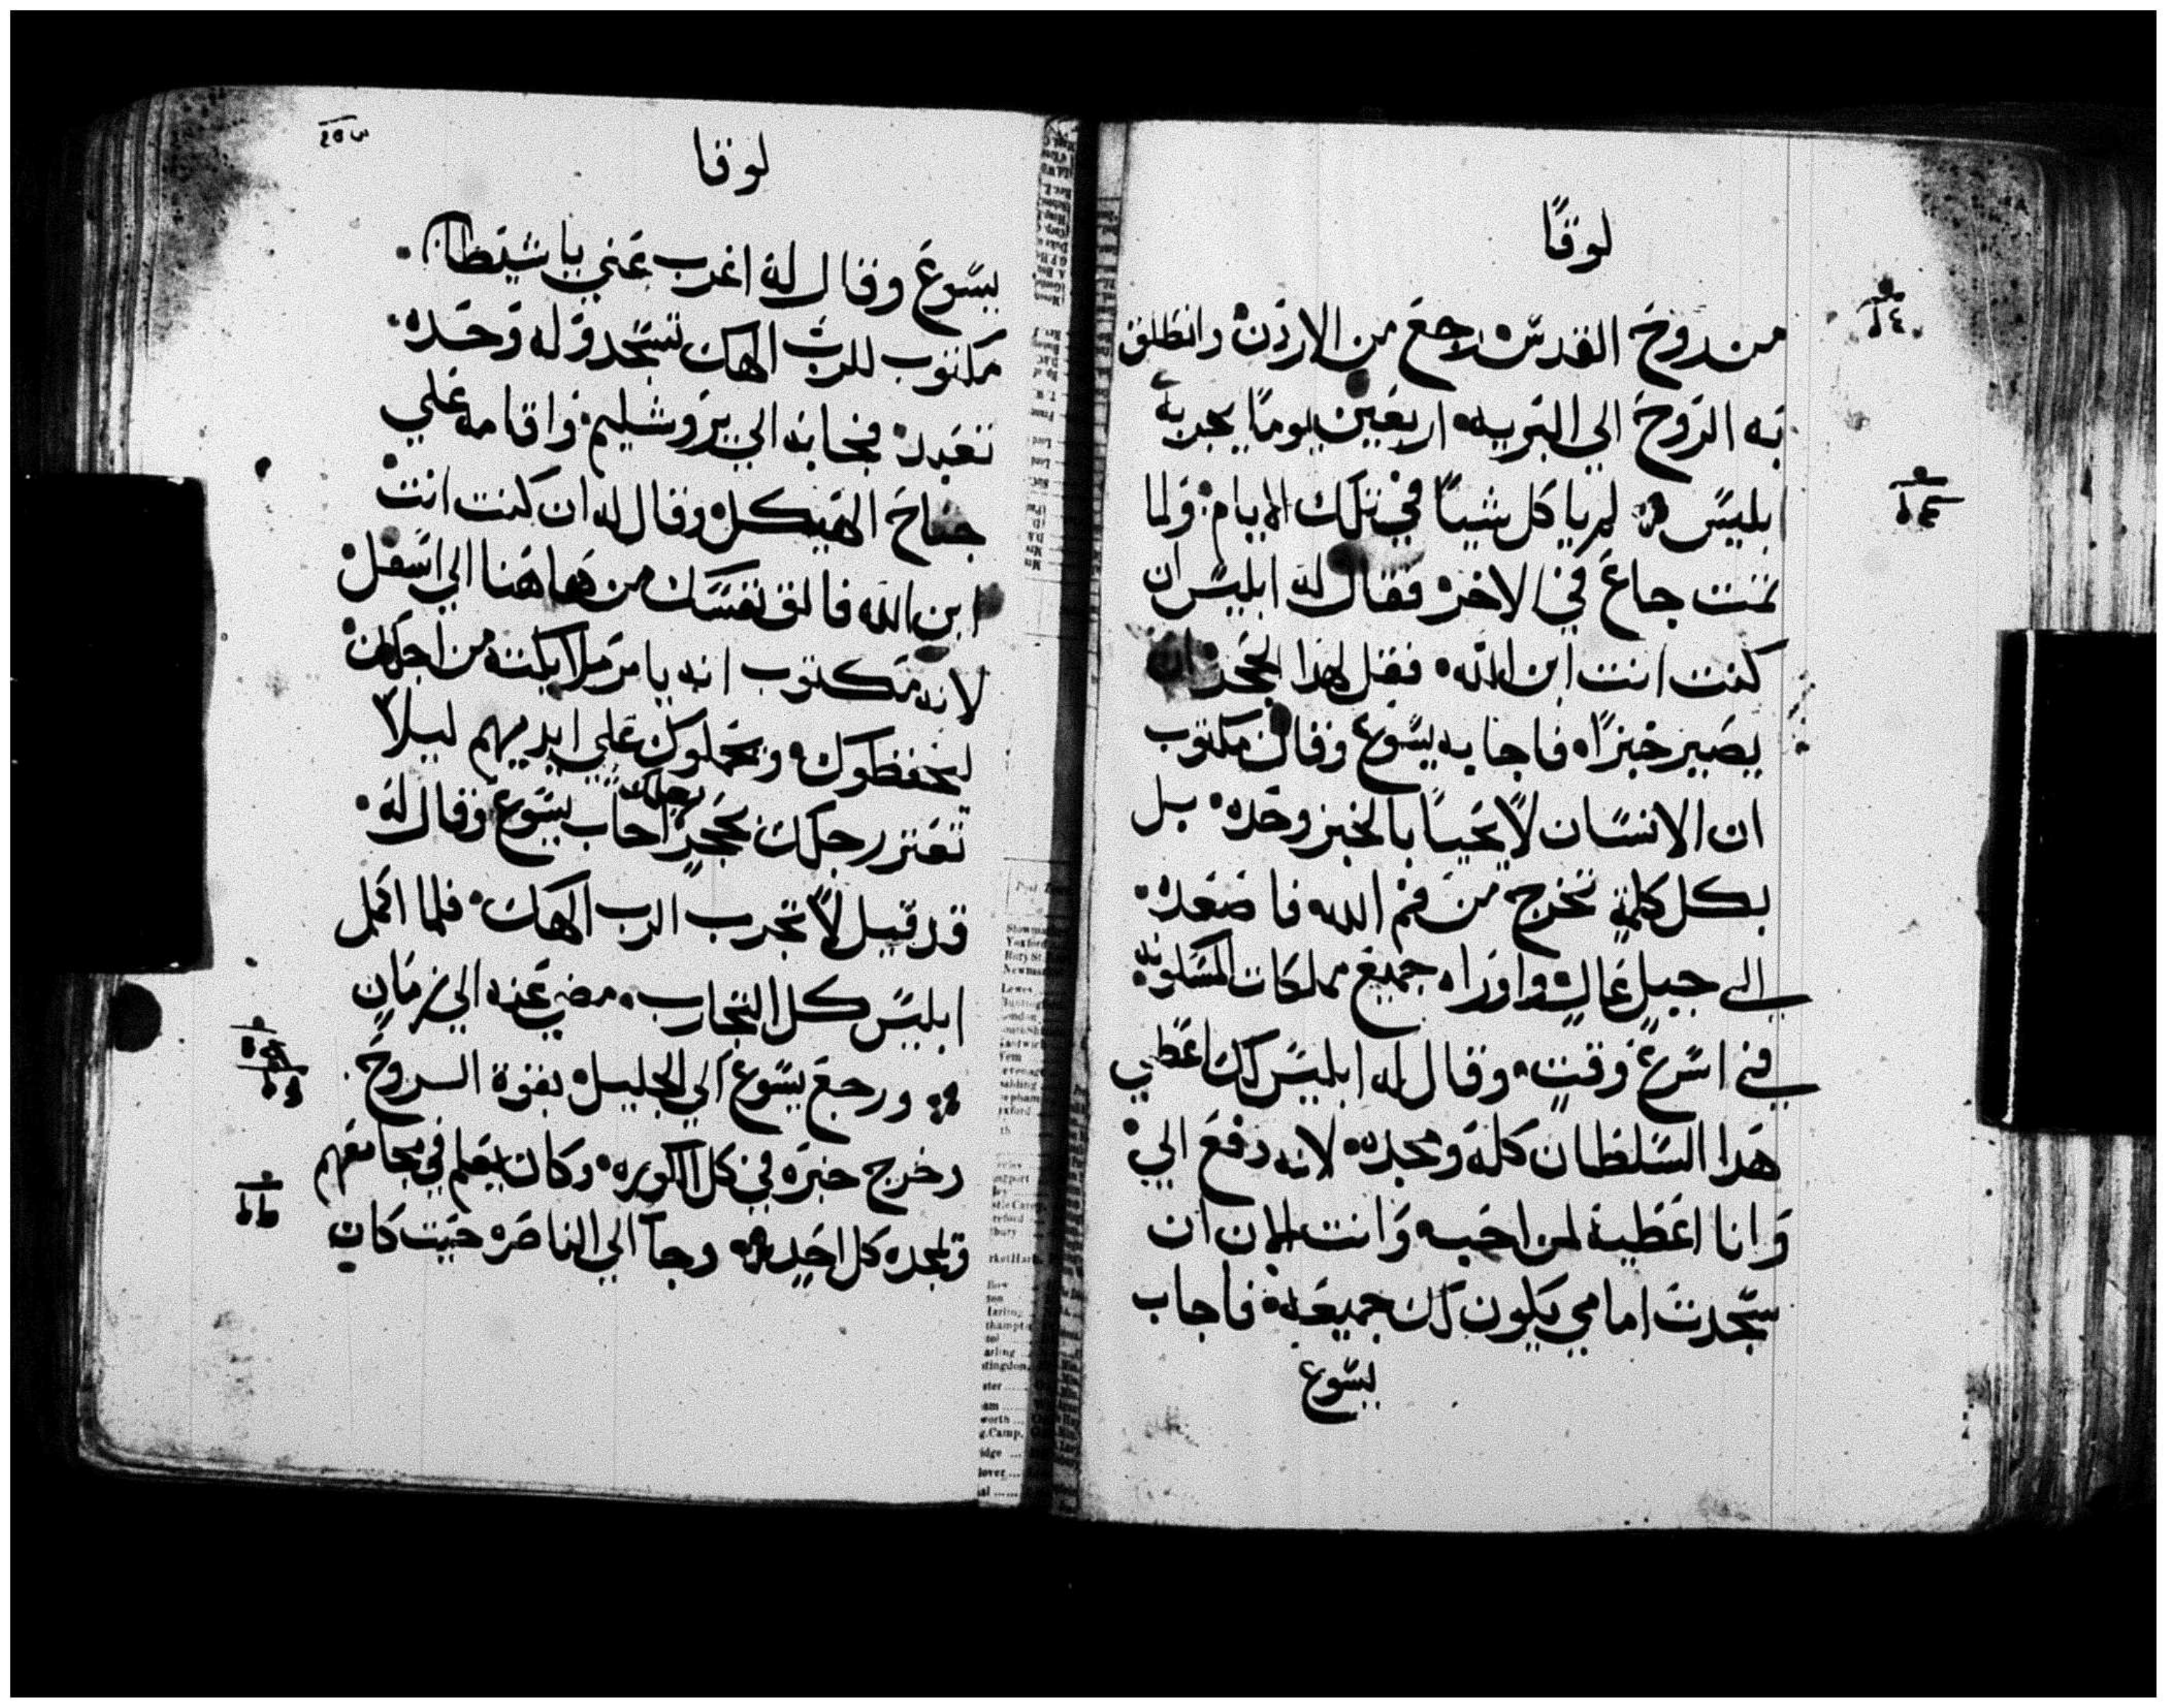 لوقا
من روح القدس رجع من الاردن وانطلق
به الروح الي البريه اربعين يوما يجربه
بليس لم ياكل شيا في تلك الايام ولما
تمت جاع في الاخر فقال له ابليس ان
كنت انت ابن الله فقل لهدا الحجر ان
يصير خبزا فاجابه يسوع وقال مكتوب
ان الانسان لا يحيا بالخبز وحده بل
بكل كلمة تخرج من فم الله فاصعده
الى جبل عال واوراه جميع مملكات المسكونه
في اسرع وقت وقال له ابليس لك اعطي
هدا السلطان كله ومجده لانه دفع الي
وانا اعطيه لمن احبه وانت الان ان
سجدت امامي يكون لك جميعه فاجاب
يسوع
لوقا
يسوع وقال له اغرب عني ياشيطان
مكتوب للرب الهك تسجد وله وحده
تعبد فجابه الي يروشليم واقامه علي
جناح الهيكل وقال له ان كنت انت
ابن الله فالق نفسك من هاهنا الي اسفل
لانه مكتوب انه يامر ملايكته من اجلك
ليحفظوك وتحملوك علي ايديهم ليلا
تعتر رجلك بحجر اجاب يسوع وقال له
قد قيل لا تجرب الرب الهك فلما اكمل
ابليس كل التجارب مضي عنه الي زمان
ورجع يسوع الي الجليل بقوة الروح
وخرج خبره في كل الكوره وكان يعلم في مجامعهم
وتمجده كل احد وجا الي الناصره حيت كان